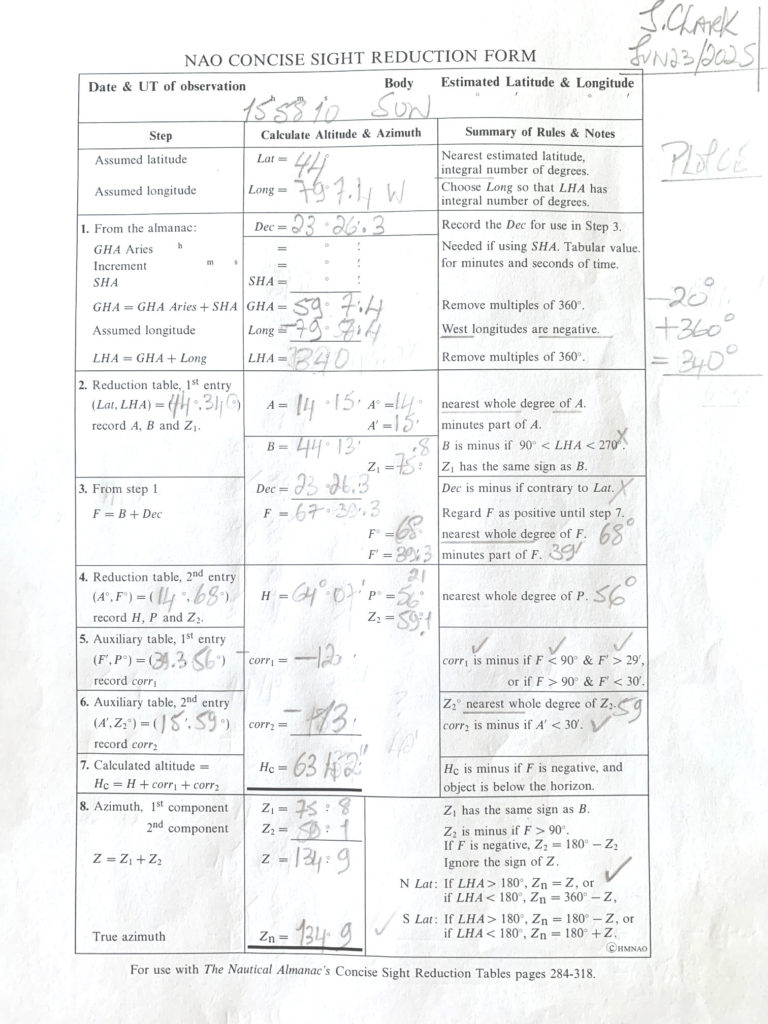 J. CLARK
JUN 23/2025
NAO CONCISE SIGHT REDUCTION FORM
Date & UT of observation Body Estimated Latitude & Longitude
15h 58m 10s SUN ° ′ ° ′
Step Calculate Altitude & Azimuth Summary of Rules & Notes
Assumed latitude Lat = 44 Nearest estimated latitude,
integral number of degrees.
Assumed longitude Long = 79° 7.4 W Choose Long so that LHA has
integral number of degrees.
1. From the almanac: Dec = 23 ° 26.3 Record the Dec for use in Step 3.
GHA Aries h = ° ′ Needed if using SHA. Tabular value.
Increment m s = ° ′ for minutes and seconds of time.
SHA SHA = ° ′
-20°
GHA = GHA Aries + SHA GHA = 59 ° 7.4 Remove multiples of 360°.
+360°
Assumed longitude Long = -79 ° 7.4 West longitudes are negative.
LHA = GHA + Long LHA = 340 Remove multiples of 360°.
= 340°
2. Reduction table, 1st entry
(Lat, LHA) = (44°, 340°) A = 14 ° 15′ A° = 14° nearest whole degree of A.
record A, B and Z₁. A′ = 15′ minutes part of A.
B = 44° 13′ B is minus if 90° < LHA < 270°. X
Z₁ = 75°.8 Z₁ has the same sign as B.
3. From step 1 Dec = 23 26.3 Dec is minus if contrary to Lat. X
F = B + Dec F = 67° 39′.3 Regard F as positive until step 7.
F° = 68° nearest whole degree of F. 68°
F′ = 39′.3 minutes part of F. 39′
4. Reduction table, 2nd entry 21
(A°, F°) = (14°, 68°) H = 64° 07′ P° = 56° nearest whole degree of P. 56°
record H, P and Z₂. Z₂ = 59°.1
5. Auxiliary table, 1st entry
(F′, P°) = (39.3 56°) corr₁ = -12′ corr₁ is minus if F < 90° & F′ > 29′,
record corr₁ or if F > 90° & F′ < 30′.
6. Auxiliary table, 2nd entry Z₂° nearest whole degree of Z₂. 59
(A′, Z₂°) = (15′, 59°) corr₂ = corr₂ is minus if A′ < 30′. ✓
record corr₂
7. Calculated altitude = Hc = 63 Hc is minus if F is negative, and
Hc = H + corr₁ + corr₂ object is below the horizon.
8. Azimuth, 1st component Z₁ = 75 °. 8 Z₁ has the same sign as B.
2nd component Z₂ = 59 °. 1 Z₂ is minus if F > 90°.
If F is negative, Z₂ = 180° − Z₂
Z = Z₁ + Z₂ Z = 134°. 9 Ignore the sign of Z. ✓
N Lat: If LHA > 180°, Zn = Z, or
if LHA < 180°, Zn = 360° − Z,
S Lat: If LHA > 180°, Zn = 180° − Z, or
True azimuth Zn = 134° 9 ✓ if LHA < 180°, Zn = 180° + Z.
©HMNAO
For use with The Nautical Almanac's Concise Sight Reduction Tables pages 284-318.